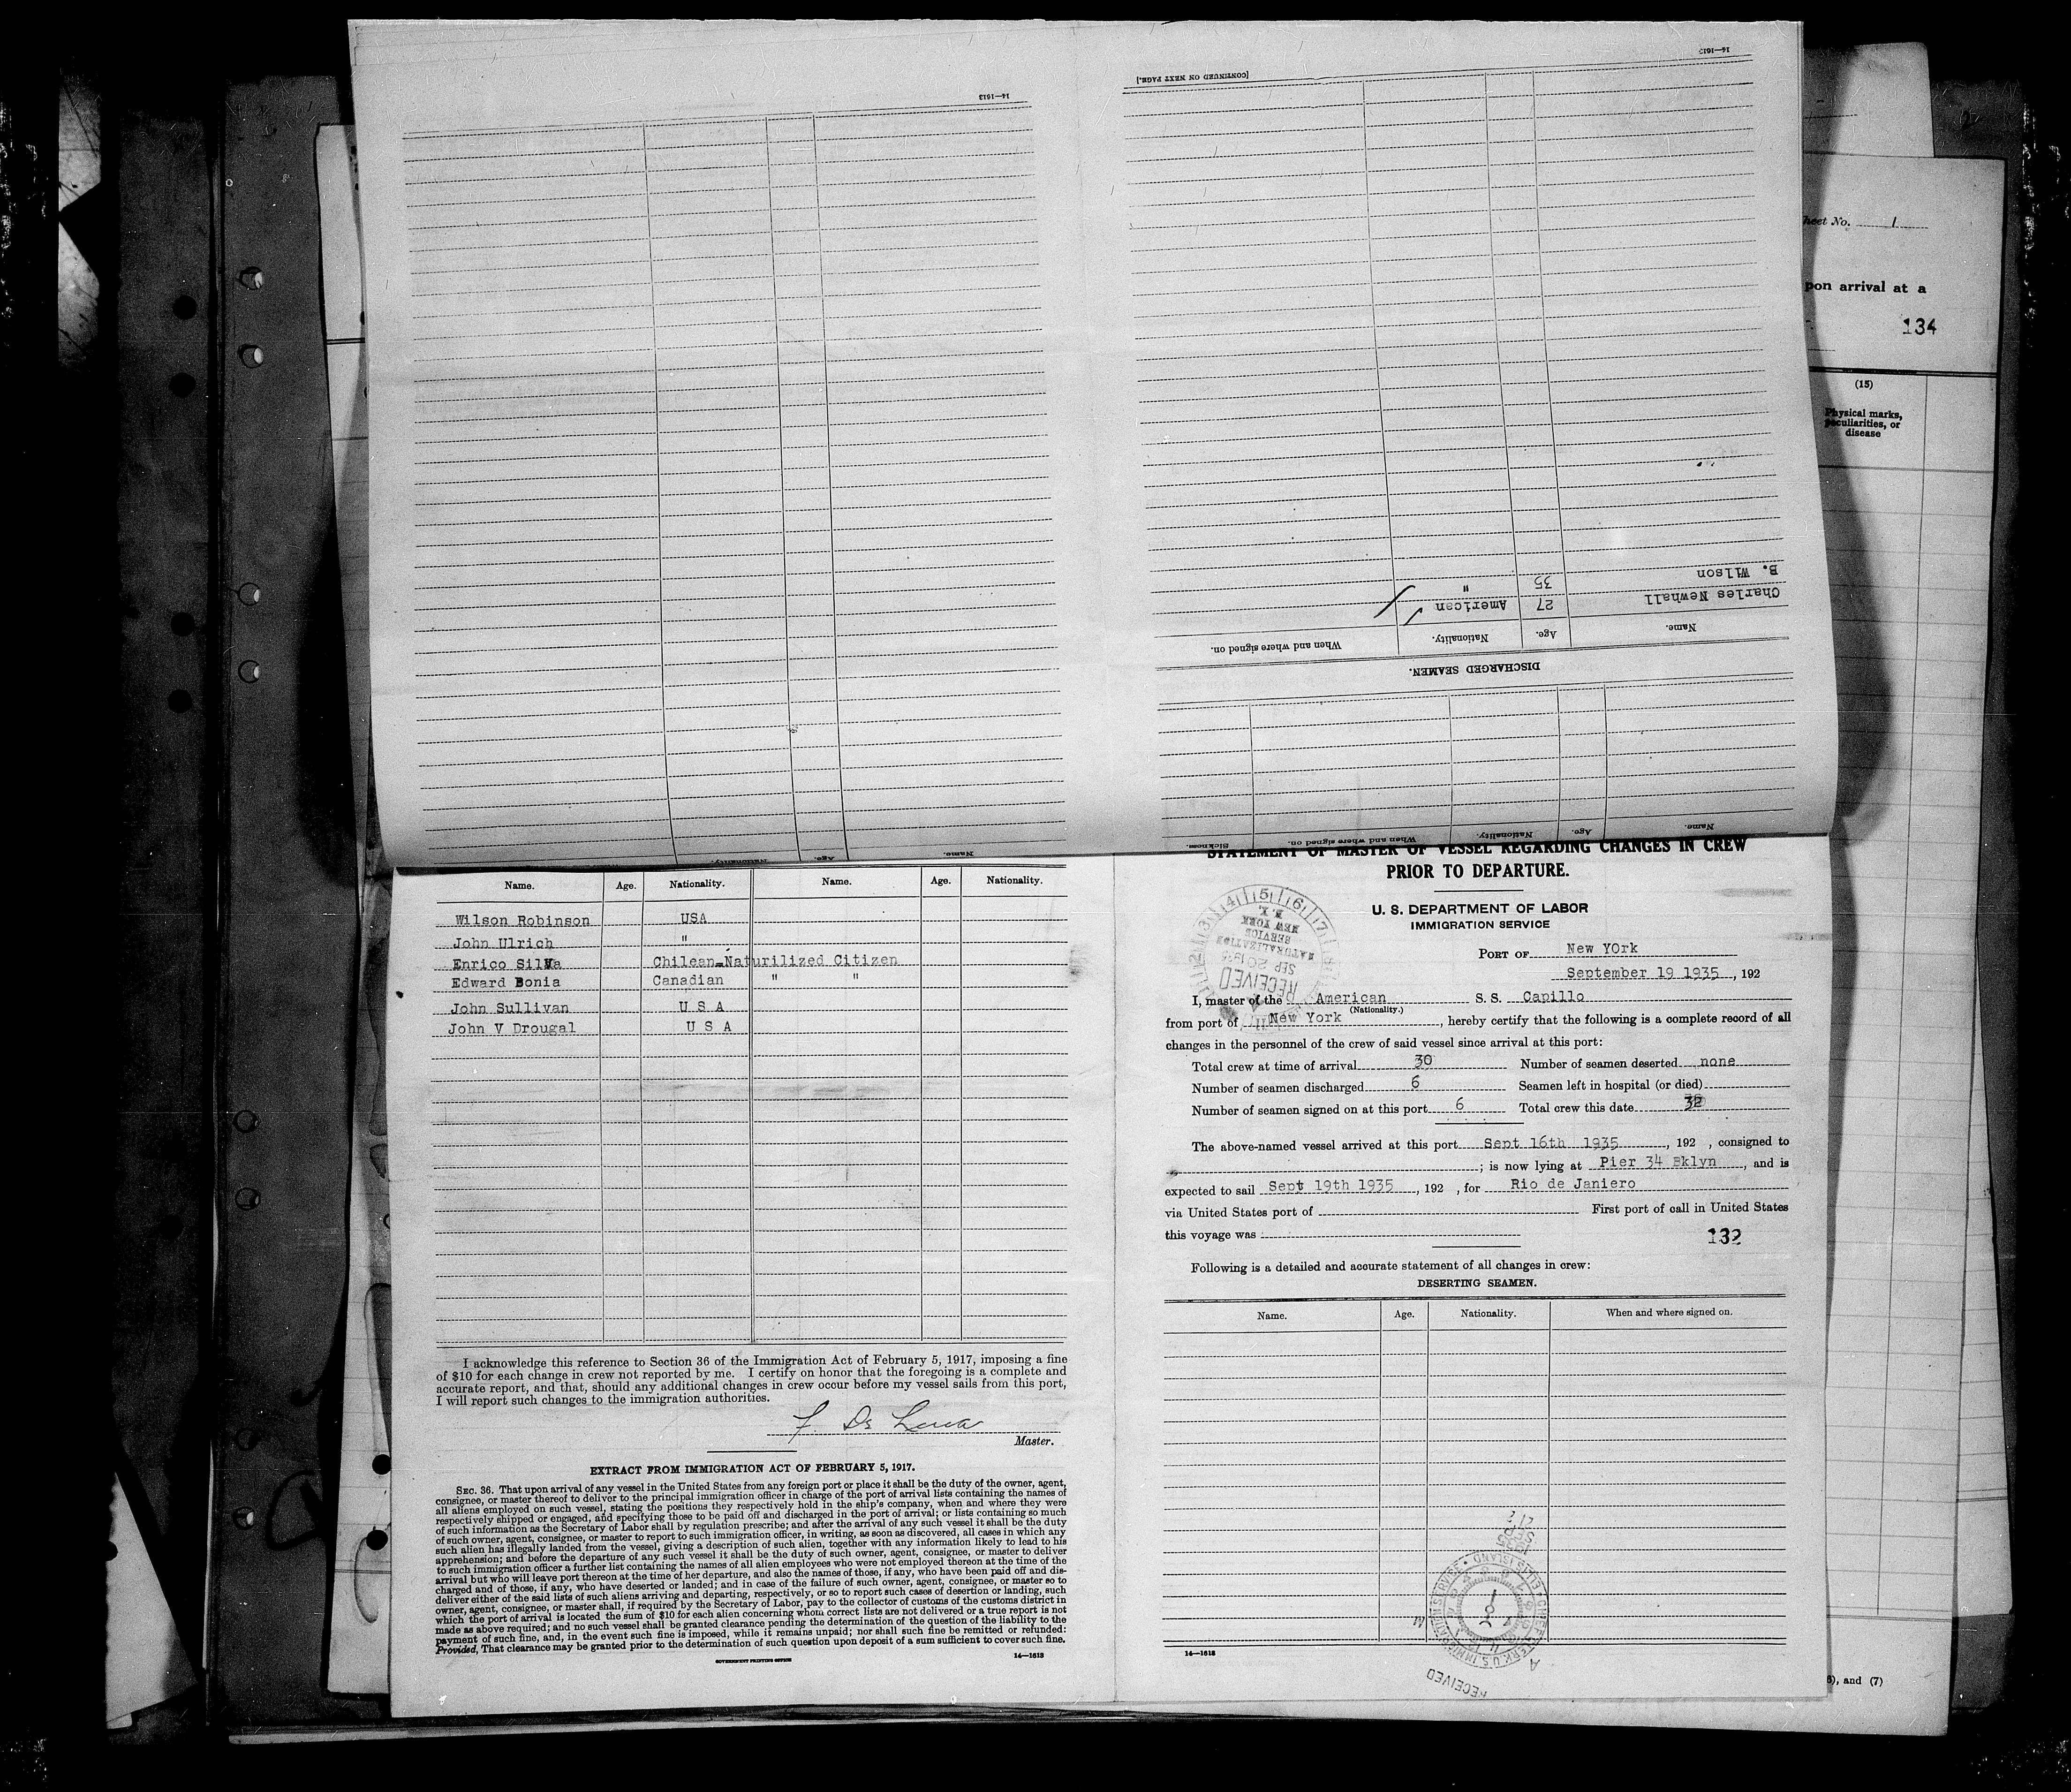 14—1613
[CONTINUED ON NEXT PAGE.]
14—1613
DISCHARGED SEAMEN.
Name. Age. Nationality. When and where signed on.
Charles Newhall 27 American
B. Wilson 35 "
Name. Age. Nationality. When and where signed on. Sickness.
Name. Age. Nationality.
heet No. 1
pon arrival at a
134
(15)
Physical marks,
peculiarities, or
disease
6), and (7)
Name. Age. Nationality. Name. Age. Nationality.
Wilson Robinson USA
John Ulrich "
Enrico Silva Chilean-Naturilized Citizen
Edward Bonia Canadian " "
John Sullivan U S A
John V Drougal U S A
I acknowledge this reference to Section 36 of the Immigration Act of February 5, 1917, imposing a fine
of $10 for each change in crew not reported by me. I certify on honor that the foregoing is a complete and
accurate report, and that, should any additional changes in crew occur before my vessel sails from this port,
I will report such changes to the immigration authorities.
Master.
EXTRACT FROM IMMIGRATION ACT OF FEBRUARY 5, 1917.
SEC. 36. That upon arrival of any vessel in the United States from any foreign port or place it shall be the duty of the owner, agent,
consignee, or master thereof to deliver to the principal immigration officer in charge of the port of arrival lists containing the names of
all aliens employed on such vessel, stating the positions they respectively hold in the ship's company, when and where they were
respectively shipped or engaged, and specifying those to be paid off and discharged in the port of arrival; or lists containing so much
of such information as the Secretary of Labor shall by regulation prescribe; and after the arrival of any such vessel it shall be the duty
of such owner, agent, consignee, or master to report to such immigration officer, in writing, as soon as discovered, all cases in which any
such alien has illegally landed from the vessel, giving a description of such alien, together with any information likely to lead to his
apprehension; and before the departure of any such vessel it shall be the duty of such owner, agent, consignee, or master to deliver
to such immigration officer a further list containing the names of all alien employees who were not employed thereon at the time of the
arrival but who will leave port thereon at the time of her departure, and also the names of those, if any, who have been paid off and dis-
charged and of those, if any, who have deserted or landed; and in case of the failure of such owner, agent, consignee, or master so to
deliver either of the said lists of such aliens arriving and departing, respectively, or so to report such cases of desertion or landing, such
owner, agent, consignee, or master shall, if required by the Secretary of Labor, pay to the collector of customs of the customs district in
which the port of arrival is located the sum of $10 for each alien concerning whom correct lists are not delivered or a true report is not
made as above required; and no such vessel shall be granted clearance pending the determination of the question of the liability to the
payment of such fine, and, in the event such fine is imposed, while it remains unpaid; nor shall such fine be remitted or refunded:
Provided, That clearance may be granted prior to the determination of such question upon deposit of a sum sufficient to cover such fine.
GOVERNMENT PRINTING OFFICE 14—1613
STATEMENT OF MASTER OF VESSEL REGARDING CHANGES IN CREW
PRIOR TO DEPARTURE.
U. S. DEPARTMENT OF LABOR
IMMIGRATION SERVICE
PORT OF New YOrk
September 19 1935, 192
I, master of the American S. S. Capillo
(Nationality.)
from port of New York, hereby certify that the following is a complete record of all
changes in the personnel of the crew of said vessel since arrival at this port:
Total crew at time of arrival 30 Number of seamen deserted none
Number of seamen discharged 6 Seamen left in hospital (or died)
Number of seamen signed on at this port 6 Total crew this date
The above-named vessel arrived at this port Sept 16th 1935, 192 , consigned to
; is now lying at Pier 34 Bklyn, and is
expected to sail Sept 19th 1935, 192 , for Rio de Janiero
via United States port of First port of call in United States
this voyage was
132
Following is a detailed and accurate statement of all changes in crew:
DESERTING SEAMEN.
Name. Age. Nationality. When and where signed on.
14—1613
RECEIVED
SEP 20 1935
NATURALIZATION
SERVICE
NEW YORK
N. Y.
RECEIVED
SEP
1935